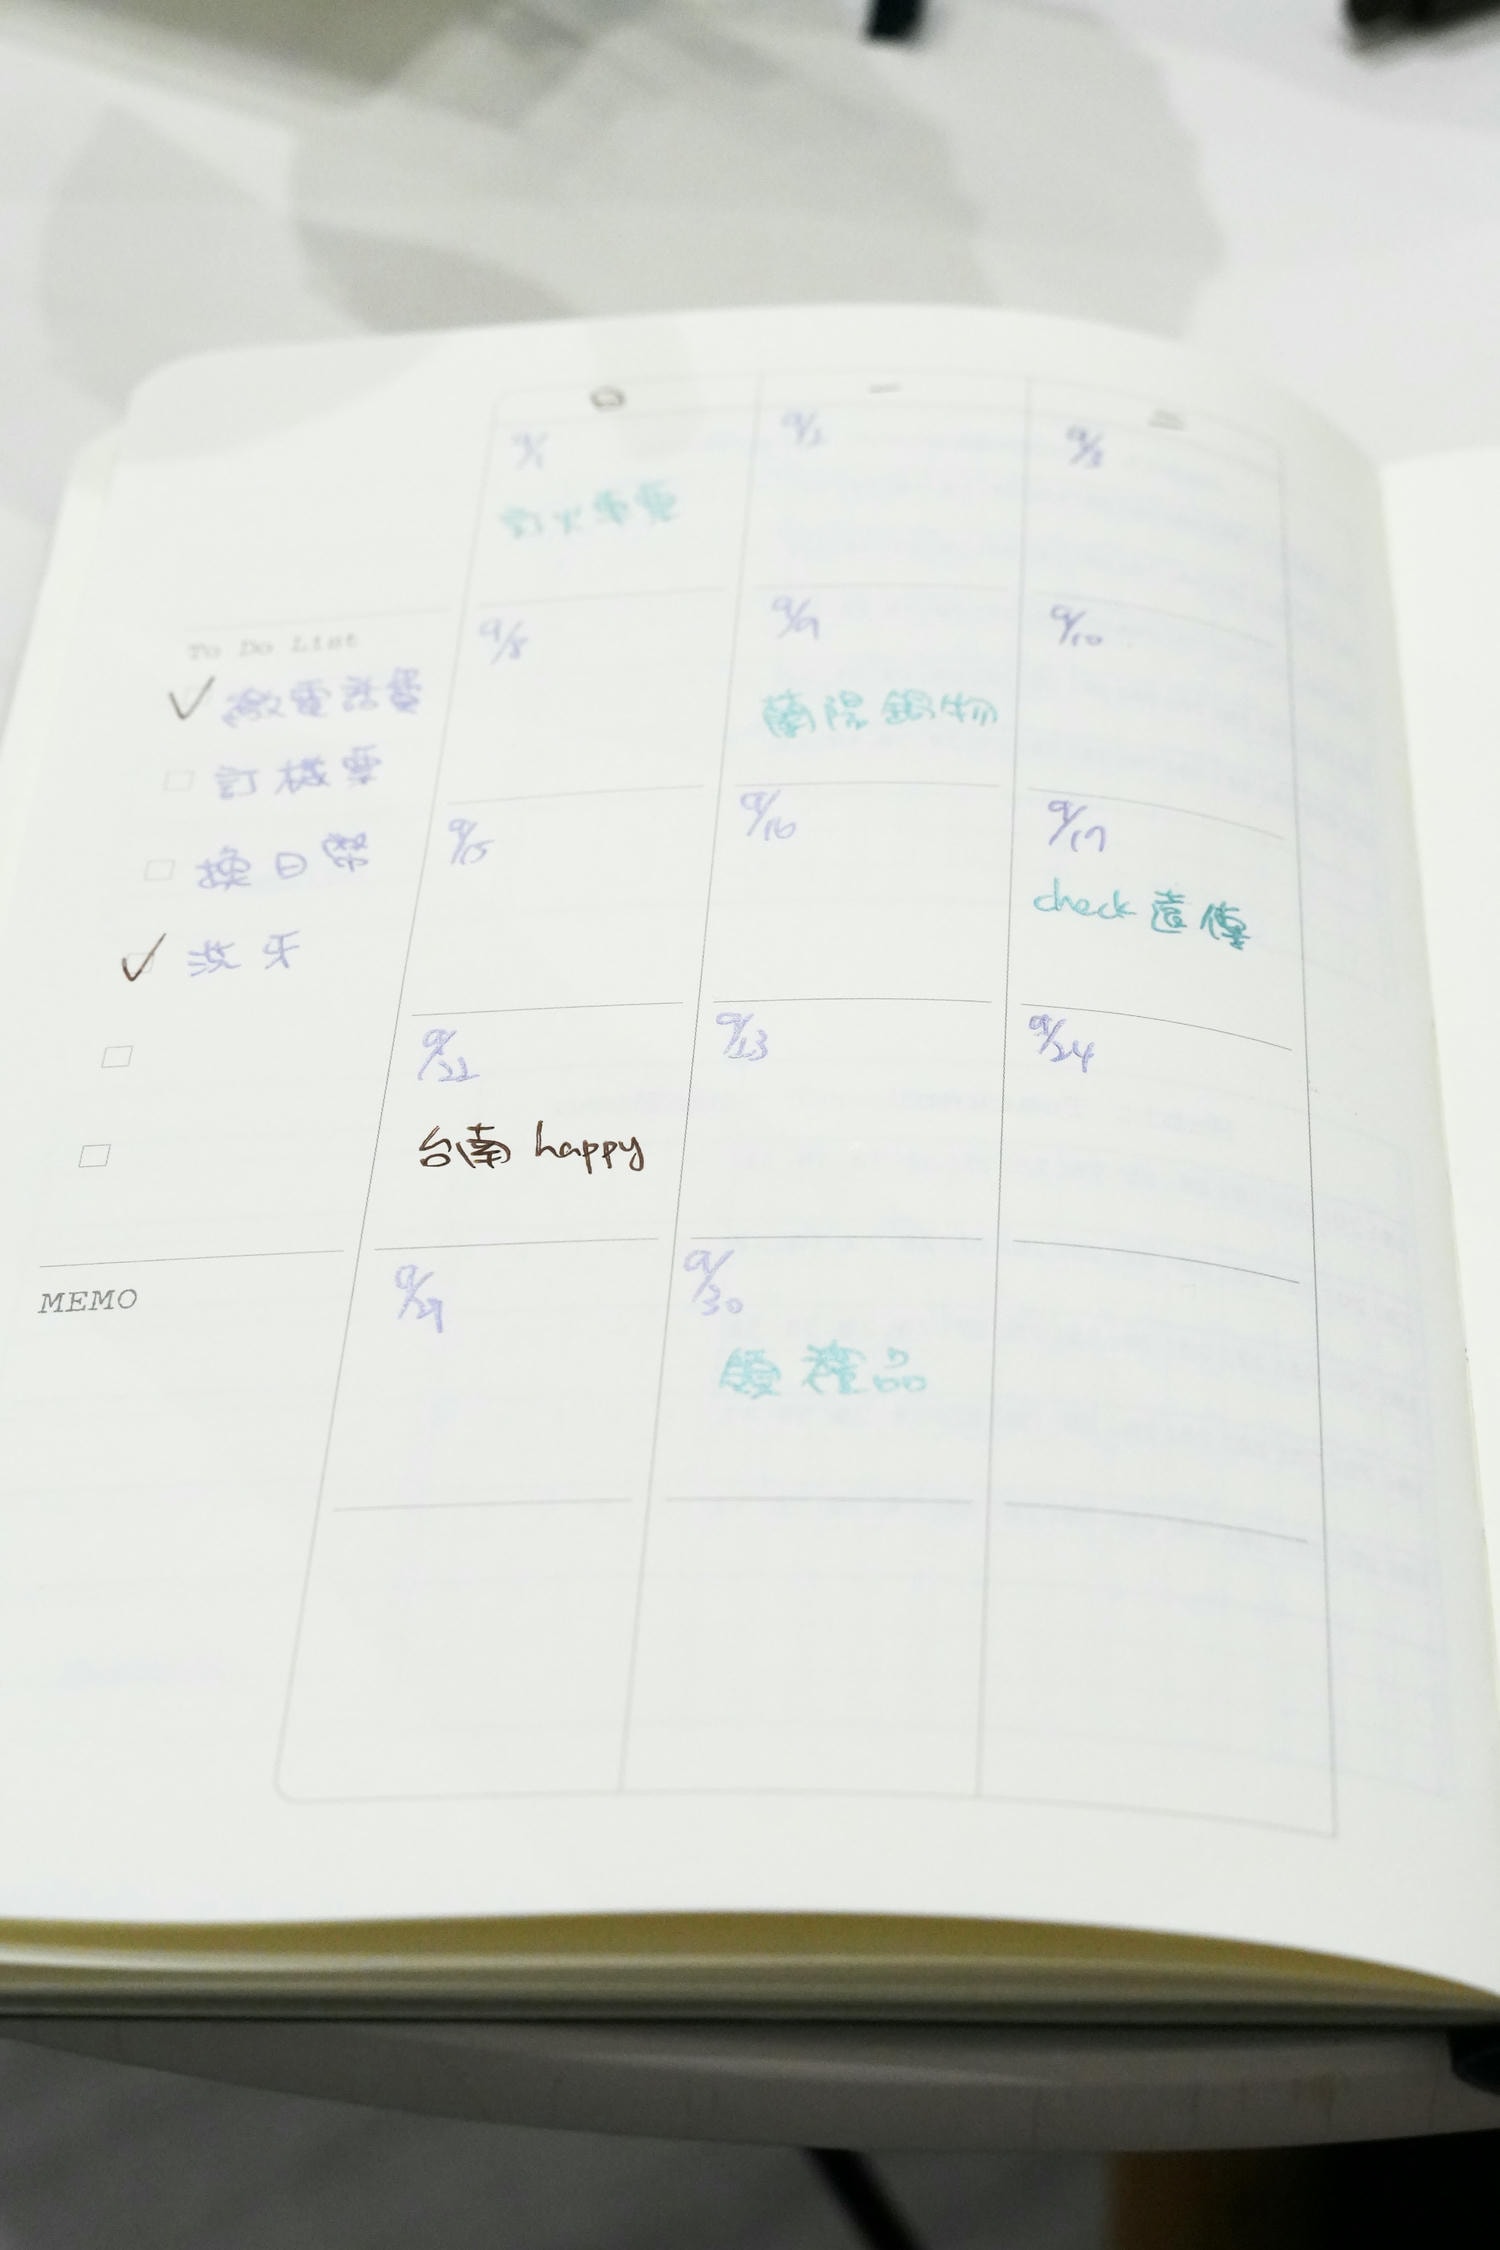 日 一 二
9/1 9/2 9/3
訂火車票
To Do List
9/8 9/9 9/10
✓ 繳電話費
蘭陽鍋物
□ 訂機票
9/15 9/16 9/17
□ 換日幣
check 遠傳
✓ 洗牙
9/22 9/23 9/24
台南 happy
MEMO
9/29 9/30
領禮品